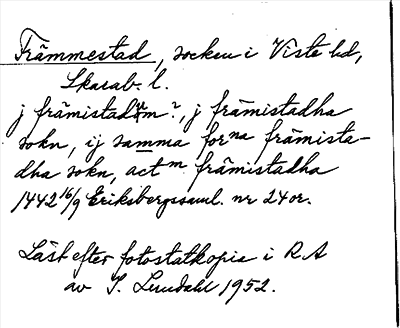 Främmestad, socken i Viste hd,
Skarab. l.
j främistadum?, j främistadha
sokn, ij samma forna främista-
dha sokn, act m främistadha
1442 16/9 Eriksbergssaml. nr 24 or.
Läst efter fotostatkopia i RA
av I. Lundahl 1952.